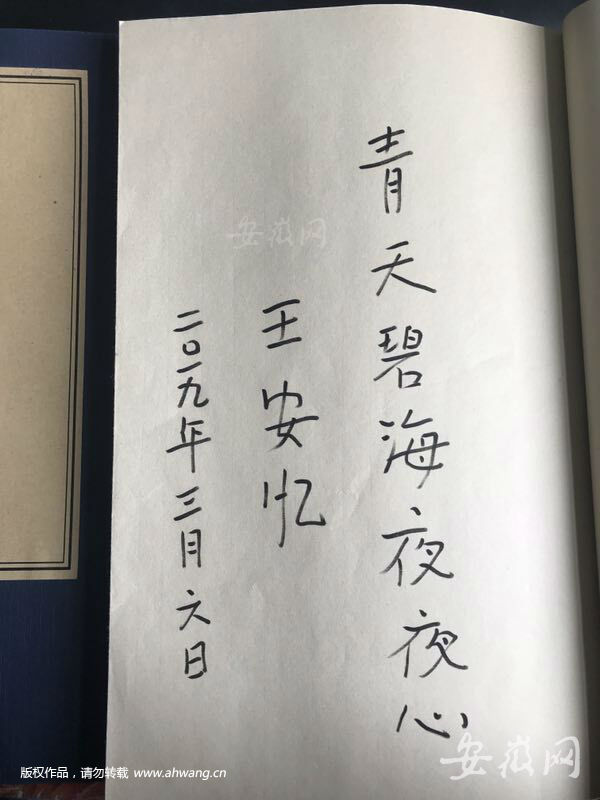 青天碧海夜夜心
王安忆
二〇一九年三月六日
安徽网
安徽网
版权作品，请勿转载 www.ahwang.cn